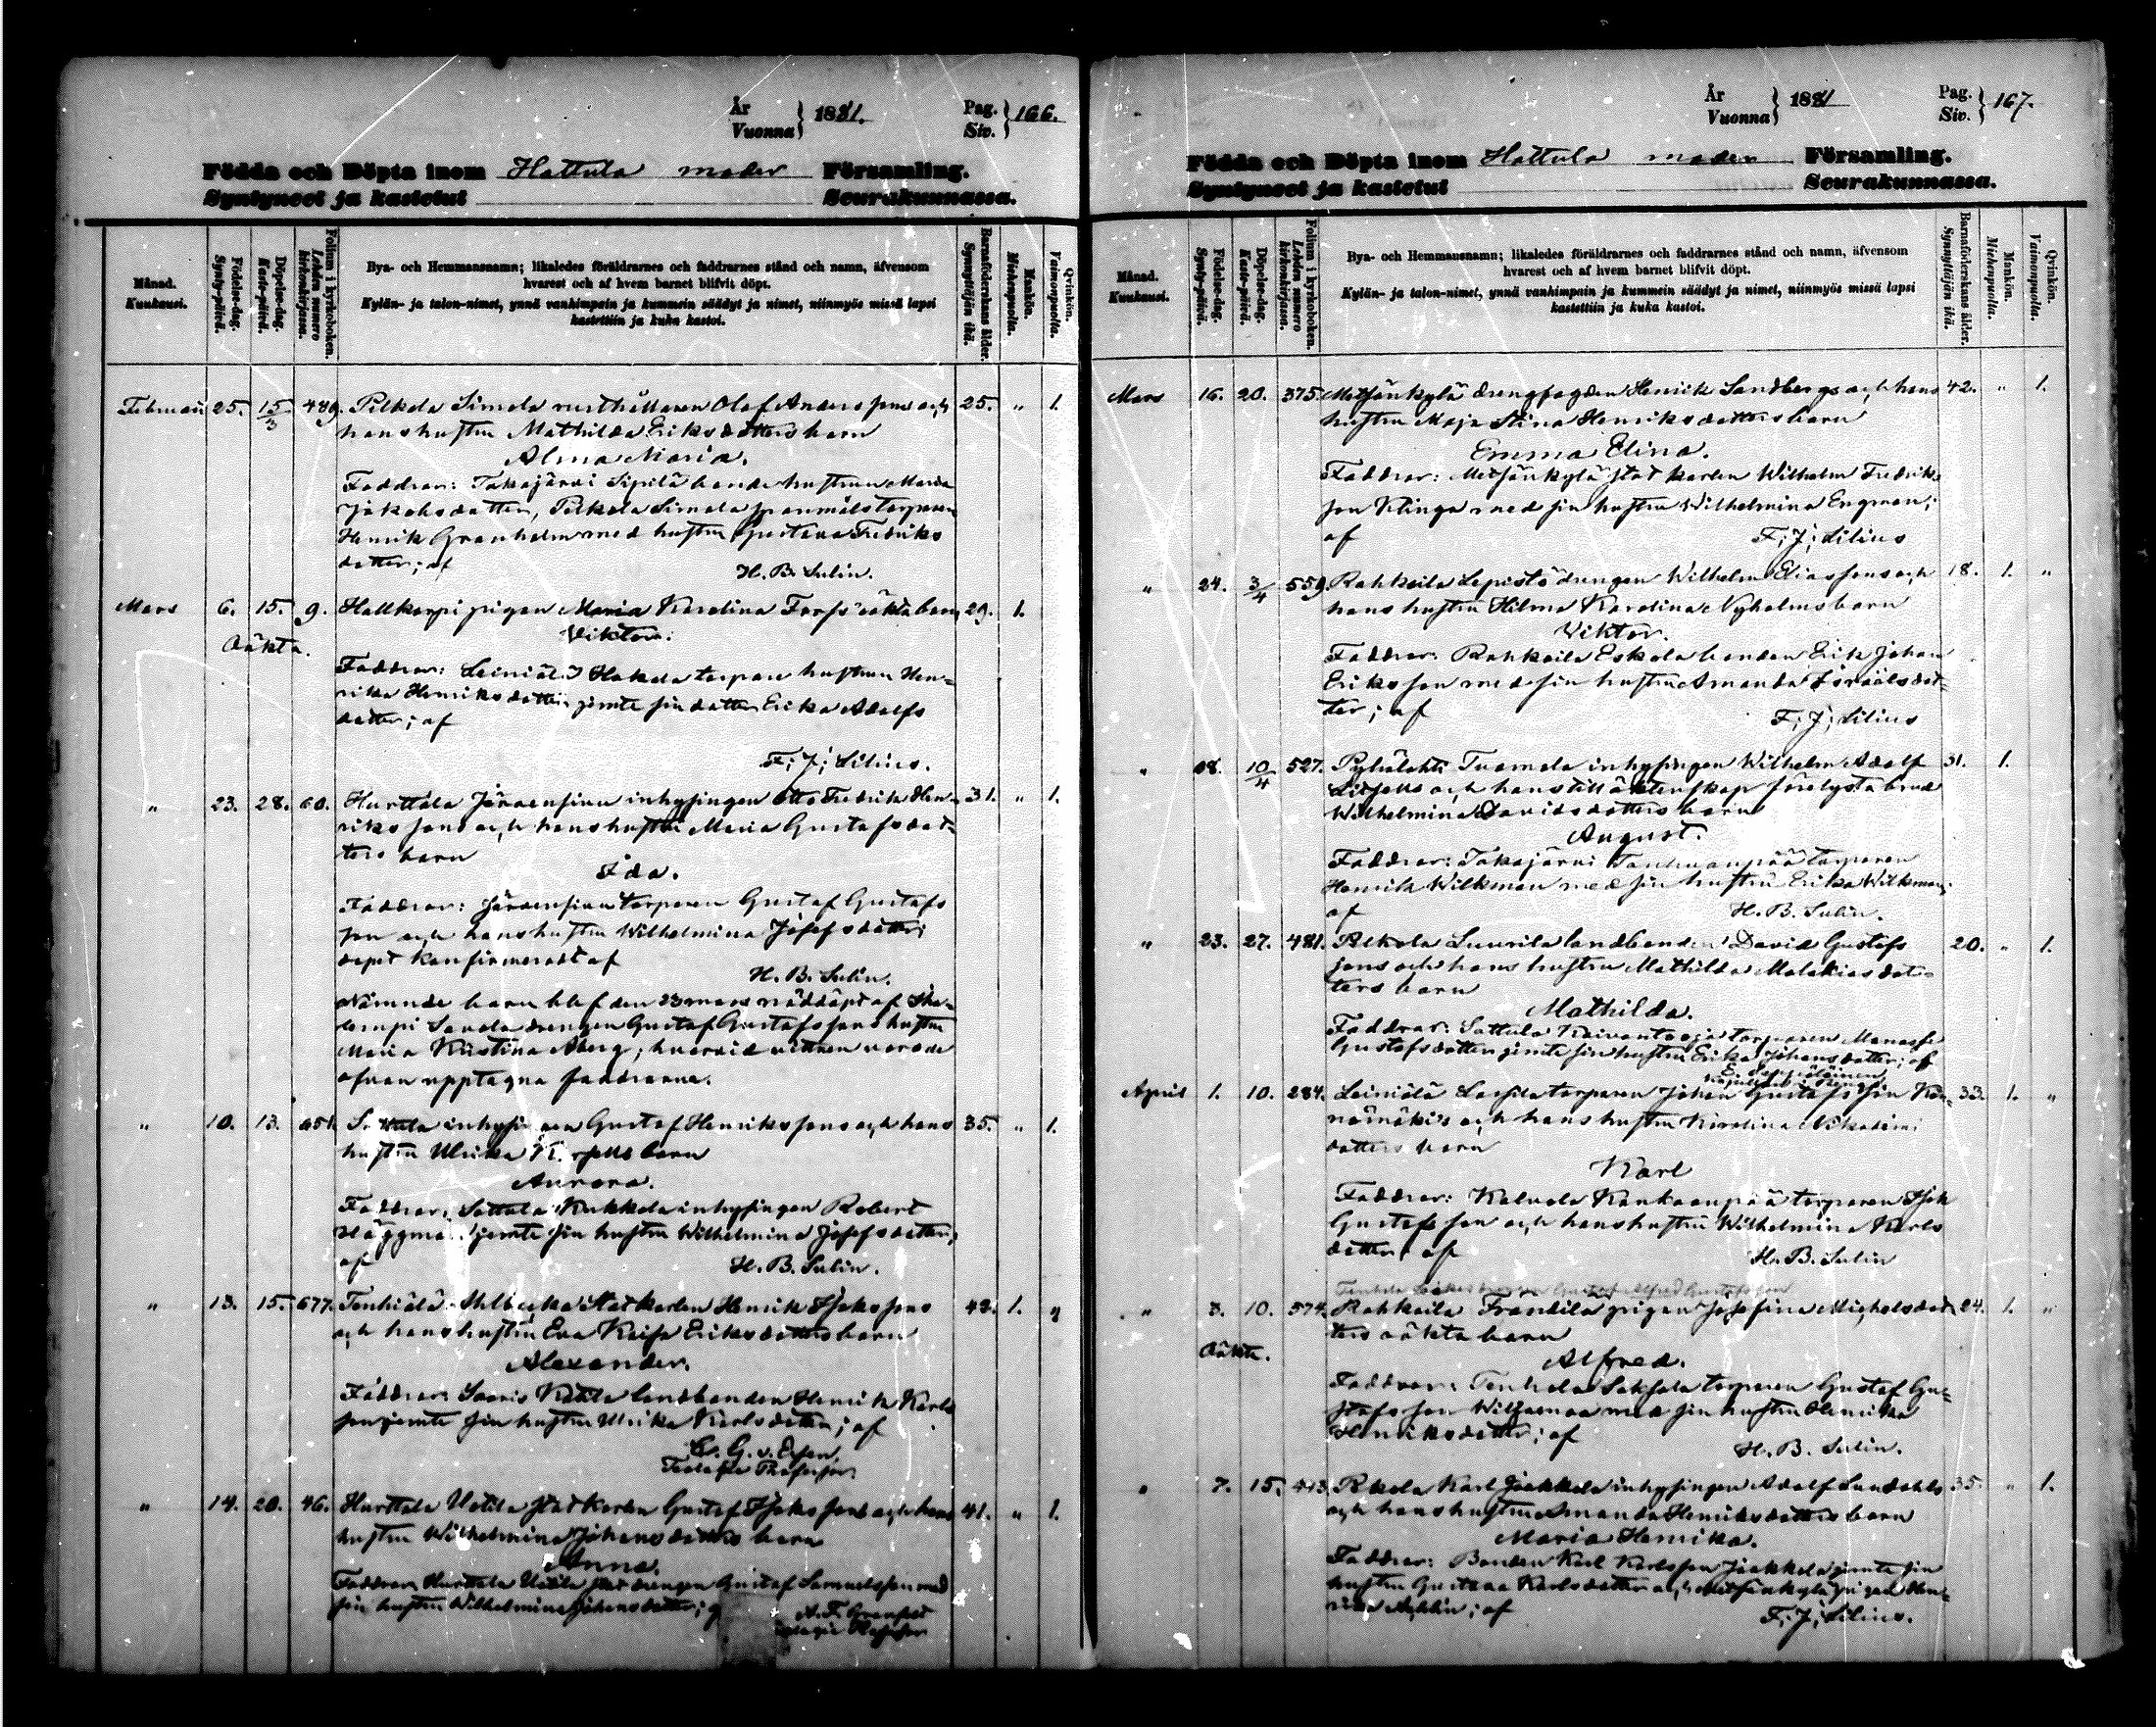 År
Vuonna } 1881.
Pag.
Siv. } 166.
Födda och Döpta inom Hattula moder Församling.
Syntyneet ja kastetut Seurakunnassa.
Månad.
Kuukausi.
Födelse-dag.
Synty-päivä.
Döpelse-dag.
Kaste-päivä.
Folium i kyrkoboken.
Lehden numero kirkonkirjassa.
Bya- och Hemmansnamn; likaledes föräldrarnes och faddrarnes stånd och namn, äfvensom
hvarest och af hvem barnet blifvit döpt.
Kylän- ja talon-nimet, ynnä vanhimpain ja kummein säädyt ja nimet, niinmyös missä lapsi
kastettiin ja kuka kastoi.
Barnaföderskans ålder.
Synnyttäjän ikä.
Mankön.
Miehenpuolta.
Qvinkön.
Vaimonpuolta.
Februari 25. 15/3 489. Pelkola Simola rusthållaren Olof Anders sons och 25. " 1.
hans hustru Mathilda Eriksdotters barn
Alma Maria.
Faddrar: Takajärvi Sipilä bonde hustrun Maria
Jakobsdotter, Pelkola Simola spanmåls torparen
Henrik Granholm med hustru Gustava Fredriks
dotter; af H. B. Sulin.
Mars 6. 15. 9. Hattkorpi pigan Maria Karolina Fors oäkta barn 29. 1.
Oäkta. Viktor.
Faddrar: Leiniälä Hakala torpare hustrun Hen-
rika Henriksdotter jemte sin dotter Erika Adolfs
dotter; af
F; J; Lilius.
" 23. 28. 60. Hurttala Järvensivu inhysingen Otto Fredrik Hen- 31. " 1.
riks sons och hans hustru Maria Gustafsdot-
ters barn
Ida.
Faddrar: Järvensivu torparen Gustaf Gustafs
son och hans hustru Wilhelmina Josefsdotter;
dopet konfirmeradt af H. B. Sulin.
Nämnde barn blef den 23 mars nöddöpt af
Savola drengen Gustaf Gustafssons hustru
Maria Kristina Åberg, hvarvid vittnen vorode
ofvan upptagna faddrarna.
" 10. 13. 651. inhysingen Gustaf Henrikssons och hans 35. " 1.
hustru Ulrika barn
Aurora.
Faddrar: Sattula Kukkola inhysingen Robert
Häggman jemte sin hustru Wilhelmina Josefsdotter;
af H. B. Sulin.
" 13. 15. 677. Tenhiälä Ahlbacka statkarlen Henrik Isaks sons 42. 1. "
och hans hustru Eva Kaisa Eriksdotters barn
Alexander.
Faddrar: Saaris Kottila landbonden Henrik Karls
son jemte sin hustru Ulrika Karlsdotter; af
C. G. v. Essen,
Teologie Professor.
" 14. 20. 46. Hurttala Uotila statkarlen Gustaf Isaks sons och hans 41. " 1.
hustru Wilhelmina Johansdotters barn
Anna.
Faddrar: Hurttala Uotila statdrengen Gustaf Samuelsson med
sin hustru Wilhelmina Johansdotter; af A. F. Granfelt
Teologie Professor
År
Vuonna } 1881
Pag.
Siv. } 167.
Födda och Döpta inom Hattula moder Församling.
Syntyneet ja kastetut Seurakunnassa.
Månad.
Kuukausi.
Födelse-dag.
Synty-päivä.
Döpelse-dag.
Kaste-päivä.
Folium i kyrkoboken.
Lehden numero kirkonkirjassa.
Bya- och Hemmansnamn; likaledes föräldrarnes och faddrarnes stånd och namn, äfvensom
hvarest och af hvem barnet blifvit döpt.
Kylän- ja talon-nimet, ynnä vanhimpain ja kummein säädyt ja nimet, niinmyös missä lapsi
kastettiin ja kuka kastoi.
Barnaföderskans ålder.
Synnyttäjän ikä.
Mankön.
Miehenpuolta.
Qvinkön.
Vaimonpuolta.
Mars 16. 20. 375. Metsänkylä drengfogden Henrik Sandbergs och hans 42. " 1.
hustru Maja Stina Henriksdotters barn
Emma Elina.
Faddrar: Metsänkylä statkarlen Wilhelm Fredriks
son Klinga med sin hustru Wilhelmina Engman;
af F; J; Lilius
" 24. 3/4 559. Rahkoila Lepistö drengen Wilhelm Elias sons och 18. 1. "
hans hustru Hilma Karolina Nyholms barn
Viktor.
Faddrar: Rahkoila Eskola bonden Erik Johan
Eriksson med sin hustru Amanda Israelsdot-
ter; af F; J; Lilius
" 28. 10/4 527. Pyhälahti Tuomola inhysingen Wilhelm Adolf 31. 1.
och hans till äktenskap förelysta brud
Wilhelmina Davidsdotters barn
August.
Faddrar: Takajärvi torparen
Henrik Wilkman med sin hustru Erika Wilkman;
af H. B. Sulin.
" 23. 27. 481. Pelkola Suurila landbonden David Gustafs 20. " 1.
sons och hans hustru Mathilda Malakiasdot-
ters barn
Mathilda.
Faddrar: Sattula Kaivantooja torparen Manasse
Gustafsdotter jemte sin hustru Erika Johansdotter; af
April 1. 10. 284. Leiniälä Lassila torparen Johan Gustafsson 33. 1. "
och hans hustru Karolina
dotters barn
Karl
Faddrar: Kalvola Kankaanpää torparen Isak
Gustafsson och hans hustru Wilhelmina Karls
dotter; af H. B. Sulin
" 3. 10. 574. Rahkoila Franssila pigan Josefina Michelsdot- 24. 1. "
ters oäkta barn
Oäkta. Alfred.
Faddrar: Tenhola Saksala torparen Gustaf Gu-
stafsson med sin hustru Henrika
Henriksdotter; af H. B. Sulin.
" 7. 15. 413. Karl Jaakkola inhysingen Adolf Lundahls 35. " 1.
och hans hustru Amanda Henriksdotters barn
Maria Henrika.
Faddrar: Bonden Karl Karlsson Jaakkola jemte sin
hustru Gustava Karlsdotter och Metsänkylä pigan Hen-
rika ; af F; J; Lilius.